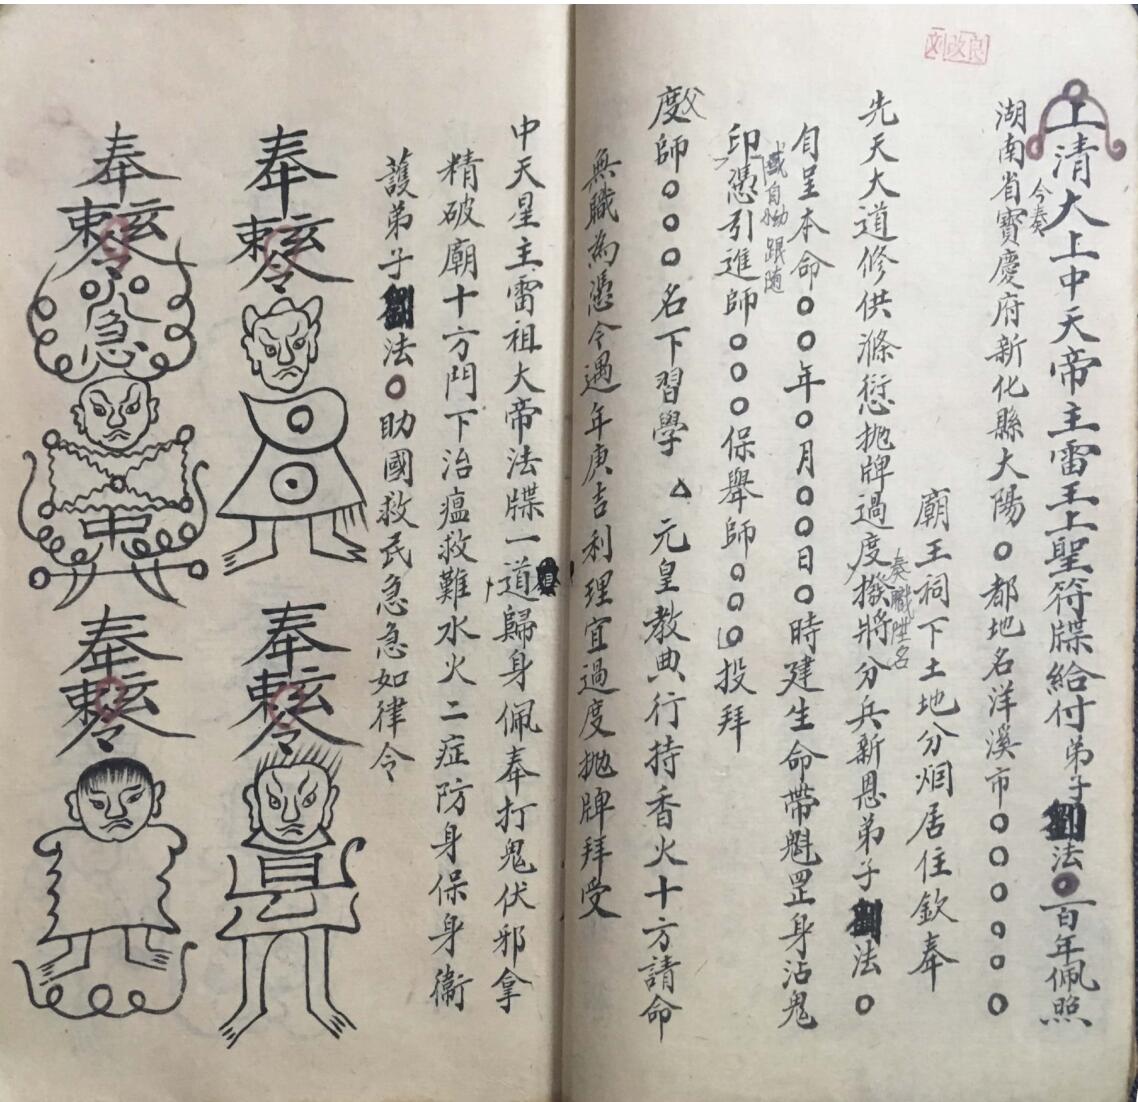 刘改良
上清大上中天帝主雷王上聖符牒給付弟子劉法○百年佩照
今奏
湖南省寶慶府新化縣大陽○都地名洋溪市○○○○○○
廟王祠下土地分烟居住欽奉
先天大道修供滌愆抛牌過度撥將分兵新恩弟子劉法○
奏職陞名
自呈本命○○年○月○○日○時建生命帶魁罡身沾鬼
或自幼跟随
印憑引進師○○○保舉師○○○投拜
度師○○○名下習學 元皇教典行持香火十方請命
父
無職為憑今遇年庚吉利理宜過度抛牌拜受
中天星主雷祖大帝法牒一道歸身佩奉打鬼伏邪拿
精破廟十方門下治瘟救難水火二症防身保身衛
護弟子劉法○助國救民急急如律令
奉
玄
敕令
奉
玄
敕令
急
中
奉
玄
敕令
奉
玄
敕令